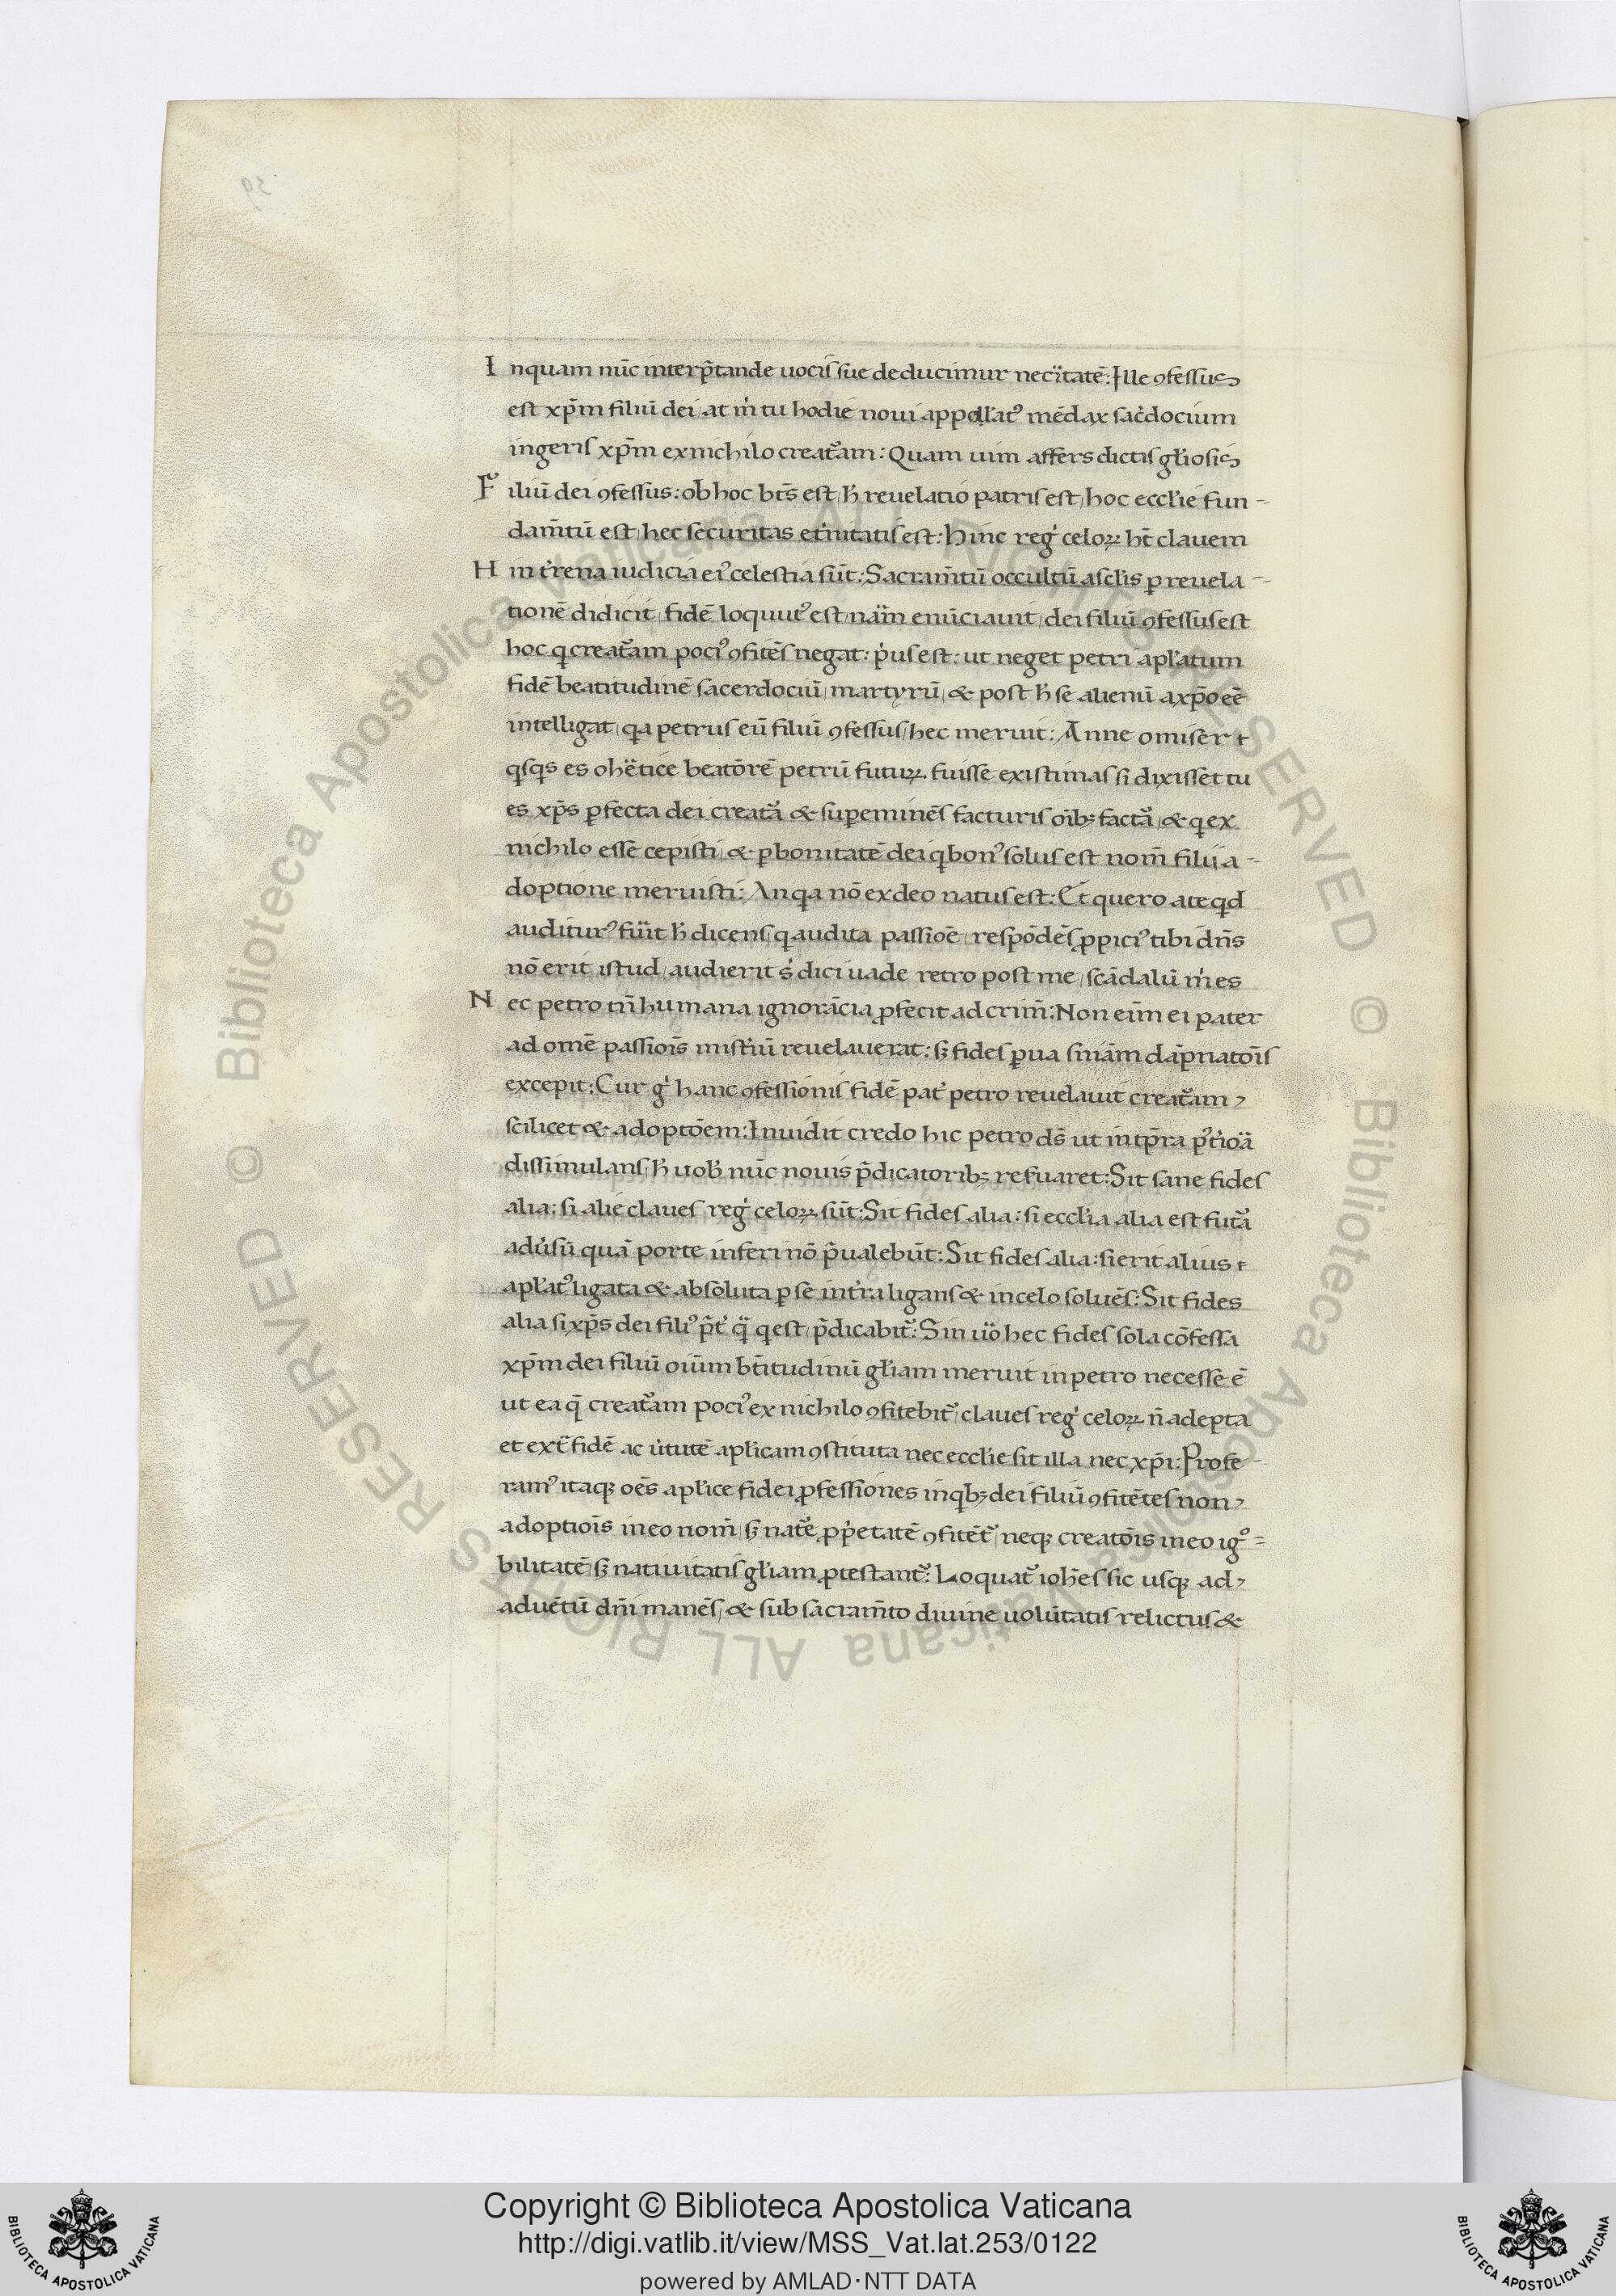 Inquam nūc interp̄tande uocis sue deducimur necïtatē: Ille ꝯfessus
est xp̄m filiū dei, at m̍ tu hodie noui appoll̍atꝰ mēdax sac̍docium
ingeris xp̄m ex nichilo creatᷓam: Quam uim affers dictis gl̍iosis
Filiū dei ꝯfessus: ob hoc bt̄s est, h̍ reuelatio patris est, hoc eccl̍ie fun-
dam̄tū est, hec securitas et̍nitatis est: Hinc reg̍ celoꝝ ht̄ clauem
Hin t̍rena iudicia eiꝰ celestia sūt: Sacram̄tū occultū a scl̍is ꝑ reuela-
tionē didicit, fidē loquutꝰ est, nam̈ enūciauit, dei filiū ꝯfessus est
hoc q creatᷓam pociꝰ ꝯfitēs negat: p̍us est: ut neget petri apl̍atum
fidē beatitudinē sacerdociū, martyrū, & post h̍ se alienū a xp̄o eē
intelligat, qa petrus eū filiū ꝯfessus, hec meruit: Anne o miser
qsqs es o hëtice beatōrē petrū futuꝝ fuisse existimas si dixisset tu
es xp̄s ꝑfecta dei creatᷓa & suꝑeminēs facturis oīb; factᷓa, & q ex
nichilo esse cepisti, & ꝑ bonitatē dei q bonꝰ solus est nom̄ filii a-
doptione meruisti: An qa nō ex deo natus est: Et quero a te qd
auditurꝰ fuït h̍ dicens, q audita passioē, respōdēs, ꝓpiciꝰ tibi dn̄s
nō erit istud, audierit s̍ dici uade retro post me, scādalū m̍ es
Nec petro tn̄ humana ignorācia ꝓfecit ad crim̄: Non eīm ei pater
ad omē passiois̄ mist̍iū reuelauerat: sꝫ fides ꝑua sniām dāpnatōis
excepit: Cur g̍ hanc ꝯfessionis fidē pat̍ petro reuelauit creatᷓam
scilicet & adoptōem: Inuidit credo hic petro ds̄ ut in tp̄ra pꝰt̍ioᷓa
dissimulans, h̍ uob̍ nūc nouis p̄dicatorib; reſuaret: Sit sane fides
alia: si alie claues reg̍ celoꝝ sūt: Sit fides alia: si eccl̍ia alia est futᷓa
adu̍sū quā porte inferi nō p̄ualebūt: Sit fides alia: si erit alius
apl̍atꝰ ligata & absoluta ꝑ se in t̍ra ligans & in celo soluēs: Sit fides
alia si xp̄s dei filiꝰ p̄t̍ qᷓ q est, p̄dicabitᷣ: Sin uᷓo hec fides sola cōfessa
xp̄m dei filiū oiūm bt̄itudinū gl̍iam meruit in petro necesse ē
ut ea q̄ creatᷓam pociꝰ ex nichilo ꝯfitebitᷣ, claues reg̍ celoꝝ n̄ adepta
et ext̄ fidē ac u̍tutē apl̍icam ꝯstituta nec eccl̍ie sit illa nec xp̄i: Profe-
ramꝰ itaqꝫ oēs apl̍ice fidei ꝓfessiones in qb; dei filiū ꝯfitētes non
adoptiois̄ in eo nom̄, sꝫ natᷓe ꝓp̍etatē ꝯfitētᷣ, neqꝫ creatōis in eo igᷓo=
bilitatē, sꝫ natiuitatis gl̍iam ꝓtestantᷣ: Loquatᷣ ioh̄es sic usqꝫ ad
aduētū dn̄i manēs, & sub sacram̄to diuine uolūtatis relictus &
Copyright © Biblioteca Apostolica Vaticana
http://digi.vatlib.it/view/MSS_Vat.lat.253/0122
powered by AMLAD·NTT DATA